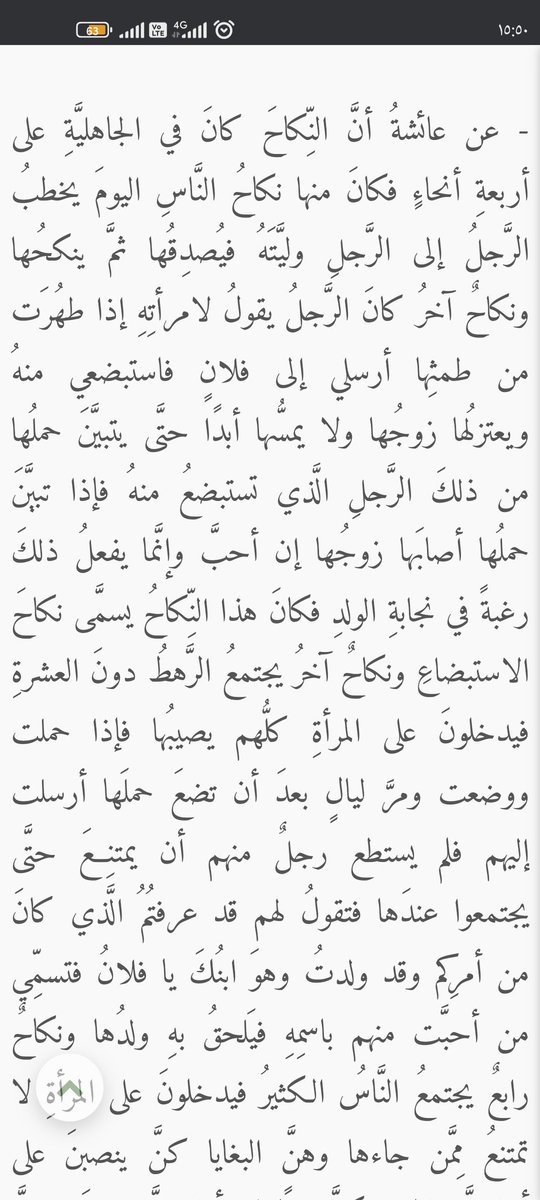 63 Vo LTE 4G ١٥:٥٠
- عن عائشةُ أنَّ النِّكاحَ كانَ في الجاهليَّةِ على
أربعةِ أنحاءٍ فكانَ منها نكاحُ النَّاسِ اليومَ يخطبُ
الرَّجلُ إلى الرَّجلِ وليَّتَهُ فيُصدِقُها ثمَّ ينكحُها
ونكاحٌ آخرُ كانَ الرَّجلُ يقولُ لامرأتِهِ إذا طهُرَت
من طمثِها أرسلي إلى فلانٍ فاستبضعي منهُ
ويعتزلُها زوجُها ولا يمسُّها أبدًا حتَّى يتبيَّنَ حملُها
من ذلكَ الرَّجلِ الَّذي تستبضعُ منهُ فإذا تبيَّنَ
حملُها أصابَها زوجُها إن أحبَّ وإنَّما يفعلُ ذلكَ
رغبةً في نجابةِ الولدِ فكانَ هذا النِّكاحُ يسمَّى نكاحَ
الاستبضاعِ ونكاحٌ آخرُ يجتمعُ الرَّهطُ دونَ العشرةِ
فيدخلونَ على المرأةِ كلُّهم يصيبُها فإذا حملت
ووضعت ومرَّ ليالٍ بعدَ أن تضعَ حملَها أرسلت
إليهم فلم يستطع رجلٌ منهم أن يمتنِعَ حتَّى
يجتمعوا عندَها فتقولُ لهم قد عرفتُمُ الَّذي كانَ
من أمرِكم وقد ولدتُ وهوَ ابنُكَ يا فلانُ فتسمِّي
من أحبَّت منهم باسمِهِ فيَلحقُ بهِ ولدُها ونكاحٌ
رابعٌ يجتمعُ النَّاسُ الكثيرُ فيدخلونَ على المرأةِ لا
تمتنعُ ممَّن جاءها وهنَّ البغايا كنَّ ينصبنَ على